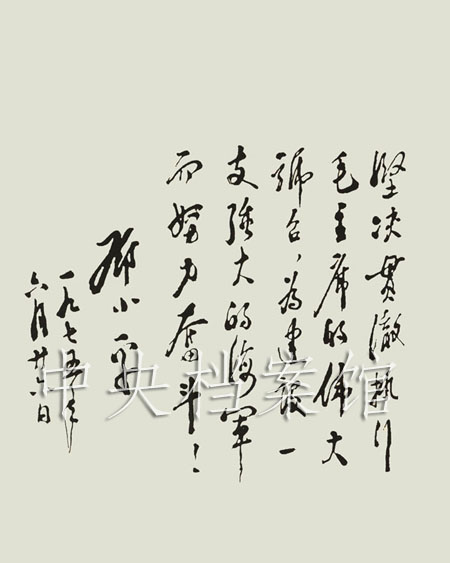 坚决贯彻执行
毛主席的伟大
号召、为建设一
支强大的海军
而努力奋斗！
邓小平
一九七五年
六月廿六日
中央档案馆